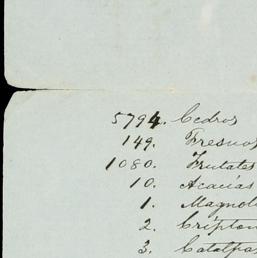 5794. Cedros
149. Fresnos
1080. Frutales
10. Acacias
1. Magnoli
2. Cripton
3. Catalpas